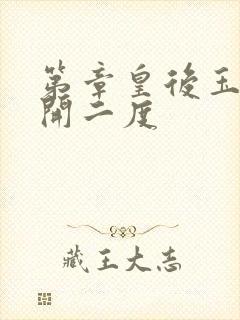 第章皇後玉
開二度
藏王大志